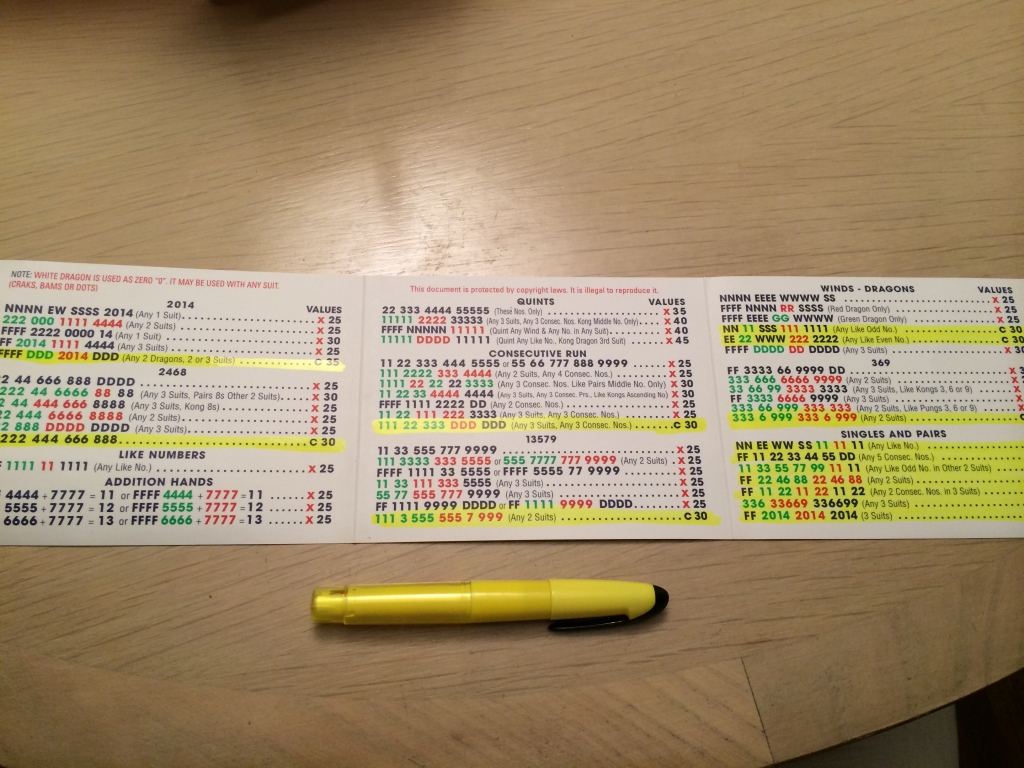 NOTE: WHITE DRAGON IS USED AS ZERO "0". IT MAY BE USED WITH ANY SUIT.
(CRAKS, BAMS OR DOTS)
2014 VALUES
NNNN EW SSSS 2014 (Any 1 Suit) X 25
222 000 1111 4444 (Any 2 Suits) X 25
FFFF 2222 0000 14 (Any 1 Suit) X 30
FF 2014 1111 4444 (Any 3 Suits) X 25
FFFF DDD 2014 DDD (Any 2 Dragons, 2 or 3 Suits) C 35
2468
44 666 888 DDDD X 25
222 44 6666 88 88 (Any 3 Suits, Pairs 8s Other 2 Suits) X 30
44 444 666 8888 (Any 3 Suits, Kong 8s) X 25
444 6666 8888 (Any 2 Suits) X 25
888 DDDD DDDD (Any 3 Suits) X 25
222 444 666 888 C 30
LIKE NUMBERS
1111 11 1111 (Any Like No.) X 25
ADDITION HANDS
4444 + 7777 = 11 or FFFF 4444 + 7777 = 11 X 25
5555 + 7777 = 12 or FFFF 5555 + 7777 = 12 X 25
6666 + 7777 = 13 or FFFF 6666 + 7777 = 13 X 25
This document is protected by copyright laws. It is illegal to reproduce it.
QUINTS VALUES
22 333 4444 55555 (These Nos. Only) X 35
11111 2222 33333 (Any 3 Suits, Any 3 Consec. Nos. Kong Middle No. Only) X 40
FFFF NNNNN 11111 (Quint Any Wind & Any No. in Any Suit) X 40
11111 DDDD 11111 (Quint Any Like No., Kong Dragon 3rd Suit) X 45
CONSECUTIVE RUN
11 22 333 444 5555 or 55 66 777 888 9999 X 25
111 2222 333 4444 (Any 2 Suits, Any 4 Consec. Nos.) X 25
1111 22 22 22 3333 (Any 3 Consec. Nos. Like Pairs Middle No. Only) X 30
11 22 33 4444 4444 (Any 3 Suits, Any 3 Consec. Prs., Like Kongs Ascending No) X 30
FFFF 1111 2222 DD (Any 2 Consec. Nos.) X 25
11 22 111 222 3333 (Any 3 Suits, Any 3 Consec. Nos.) X 25
111 22 333 DDD DDD (Any 3 Suits, Any 3 Consec. Nos.) C 30
13579
11 33 555 777 9999 X 25
111 3333 333 5555 or 555 7777 777 9999 (Any 2 Suits) X 25
FFFF 1111 33 5555 or FFFF 5555 77 9999 X 25
11 33 111 333 5555 (Any 3 Suits) X 25
55 77 555 777 9999 (Any 3 Suits) X 25
FF 1111 9999 DDDD or FF 1111 9999 DDDD X 25
111 3 555 555 7 999 (Any 2 Suits) C 30
WINDS - DRAGONS VALUES
NNNN EEEE WWWW SS X 25
FFFF NNNN RR SSSS (Red Dragon Only) X 25
FFFF EEEE GG WWWW (Green Dragon Only) X 25
NN 11 SSS 111 1111 (Any Like Odd No.) C 30
EE 22 WWW 222 2222 (Any Like Even No.) C 30
FFFF DDDD DD DDDD (Any 3 Suits)
369
FF 3333 66 9999 DD X 30
333 666 6666 9999 (Any 2 Suits) X 25
33 66 99 3333 3333 (Any 3 Suits, Like Kongs 3, 6 or 9) X 25
FFFF 3333 6666 9999 (Any 3 Suits) X 25
333 66 999 333 333 (Any 2 Suits, Like Pungs 3, 6 or 9) X 25
333 6 999 333 6 999 (Any 2 Suits)
SINGLES AND PAIRS
NN EE WW SS 11 11 11 (Any Like No.)
FF 11 22 33 44 55 DD (Any 5 Consec. Nos.)
11 33 55 77 99 11 11 (Any Like Odd No. in Other 2 Suits)
FF 22 46 88 22 46 88 (Any 2 Suits)
FF 11 22 11 22 11 22 (Any 2 Consec. Nos. in 3 Suits)
336 33669 336699 (Any 3 Suits)
FF 2014 2014 2014 (3 Suits)